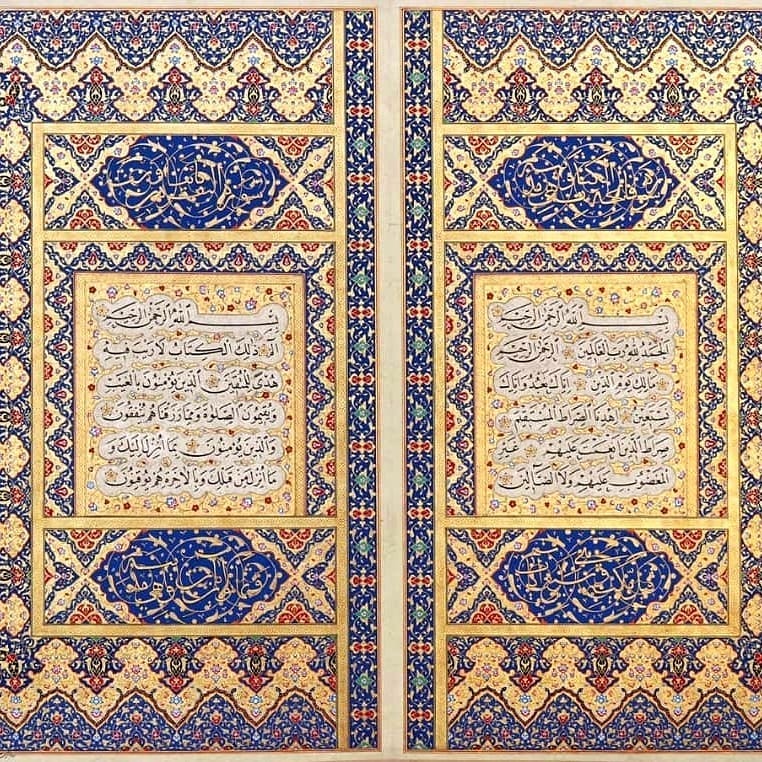 بِسْمِ اللَّهِ الرَّحْمٰنِ الرَّحِيمِ
الْحَمْدُ لِلَّهِ رَبِّ الْعَالَمِينَ الرَّحْمٰنِ الرَّحِيمِ
مَالِكِ يَوْمِ الدِّينِ إِيَّاكَ نَعْبُدُ وَإِيَّاكَ
نَسْتَعِينُ اهْدِنَا الصِّرَاطَ الْمُسْتَقِيمَ
صِرَاطَ الَّذِينَ أَنْعَمْتَ عَلَيْهِمْ غَيْرِ
الْمَغْضُوبِ عَلَيْهِمْ وَلَا الضَّالِّينَ
بِسْمِ اللَّهِ الرَّحْمٰنِ الرَّحِيمِ
الٓمٓ ذٰلِكَ الْكِتَابُ لَا رَيْبَ فِيهِ
هُدًى لِلْمُتَّقِينَ الَّذِينَ يُؤْمِنُونَ بِالْغَيْبِ
وَيُقِيمُونَ الصَّلٰوةَ وَمِمَّا رَزَقْنَاهُمْ يُنْفِقُونَ
وَالَّذِينَ يُؤْمِنُونَ بِمَا أُنْزِلَ إِلَيْكَ وَ
مَا أُنْزِلَ مِنْ قَبْلِكَ وَبِالْآخِرَةِ هُمْ يُوقِنُونَ